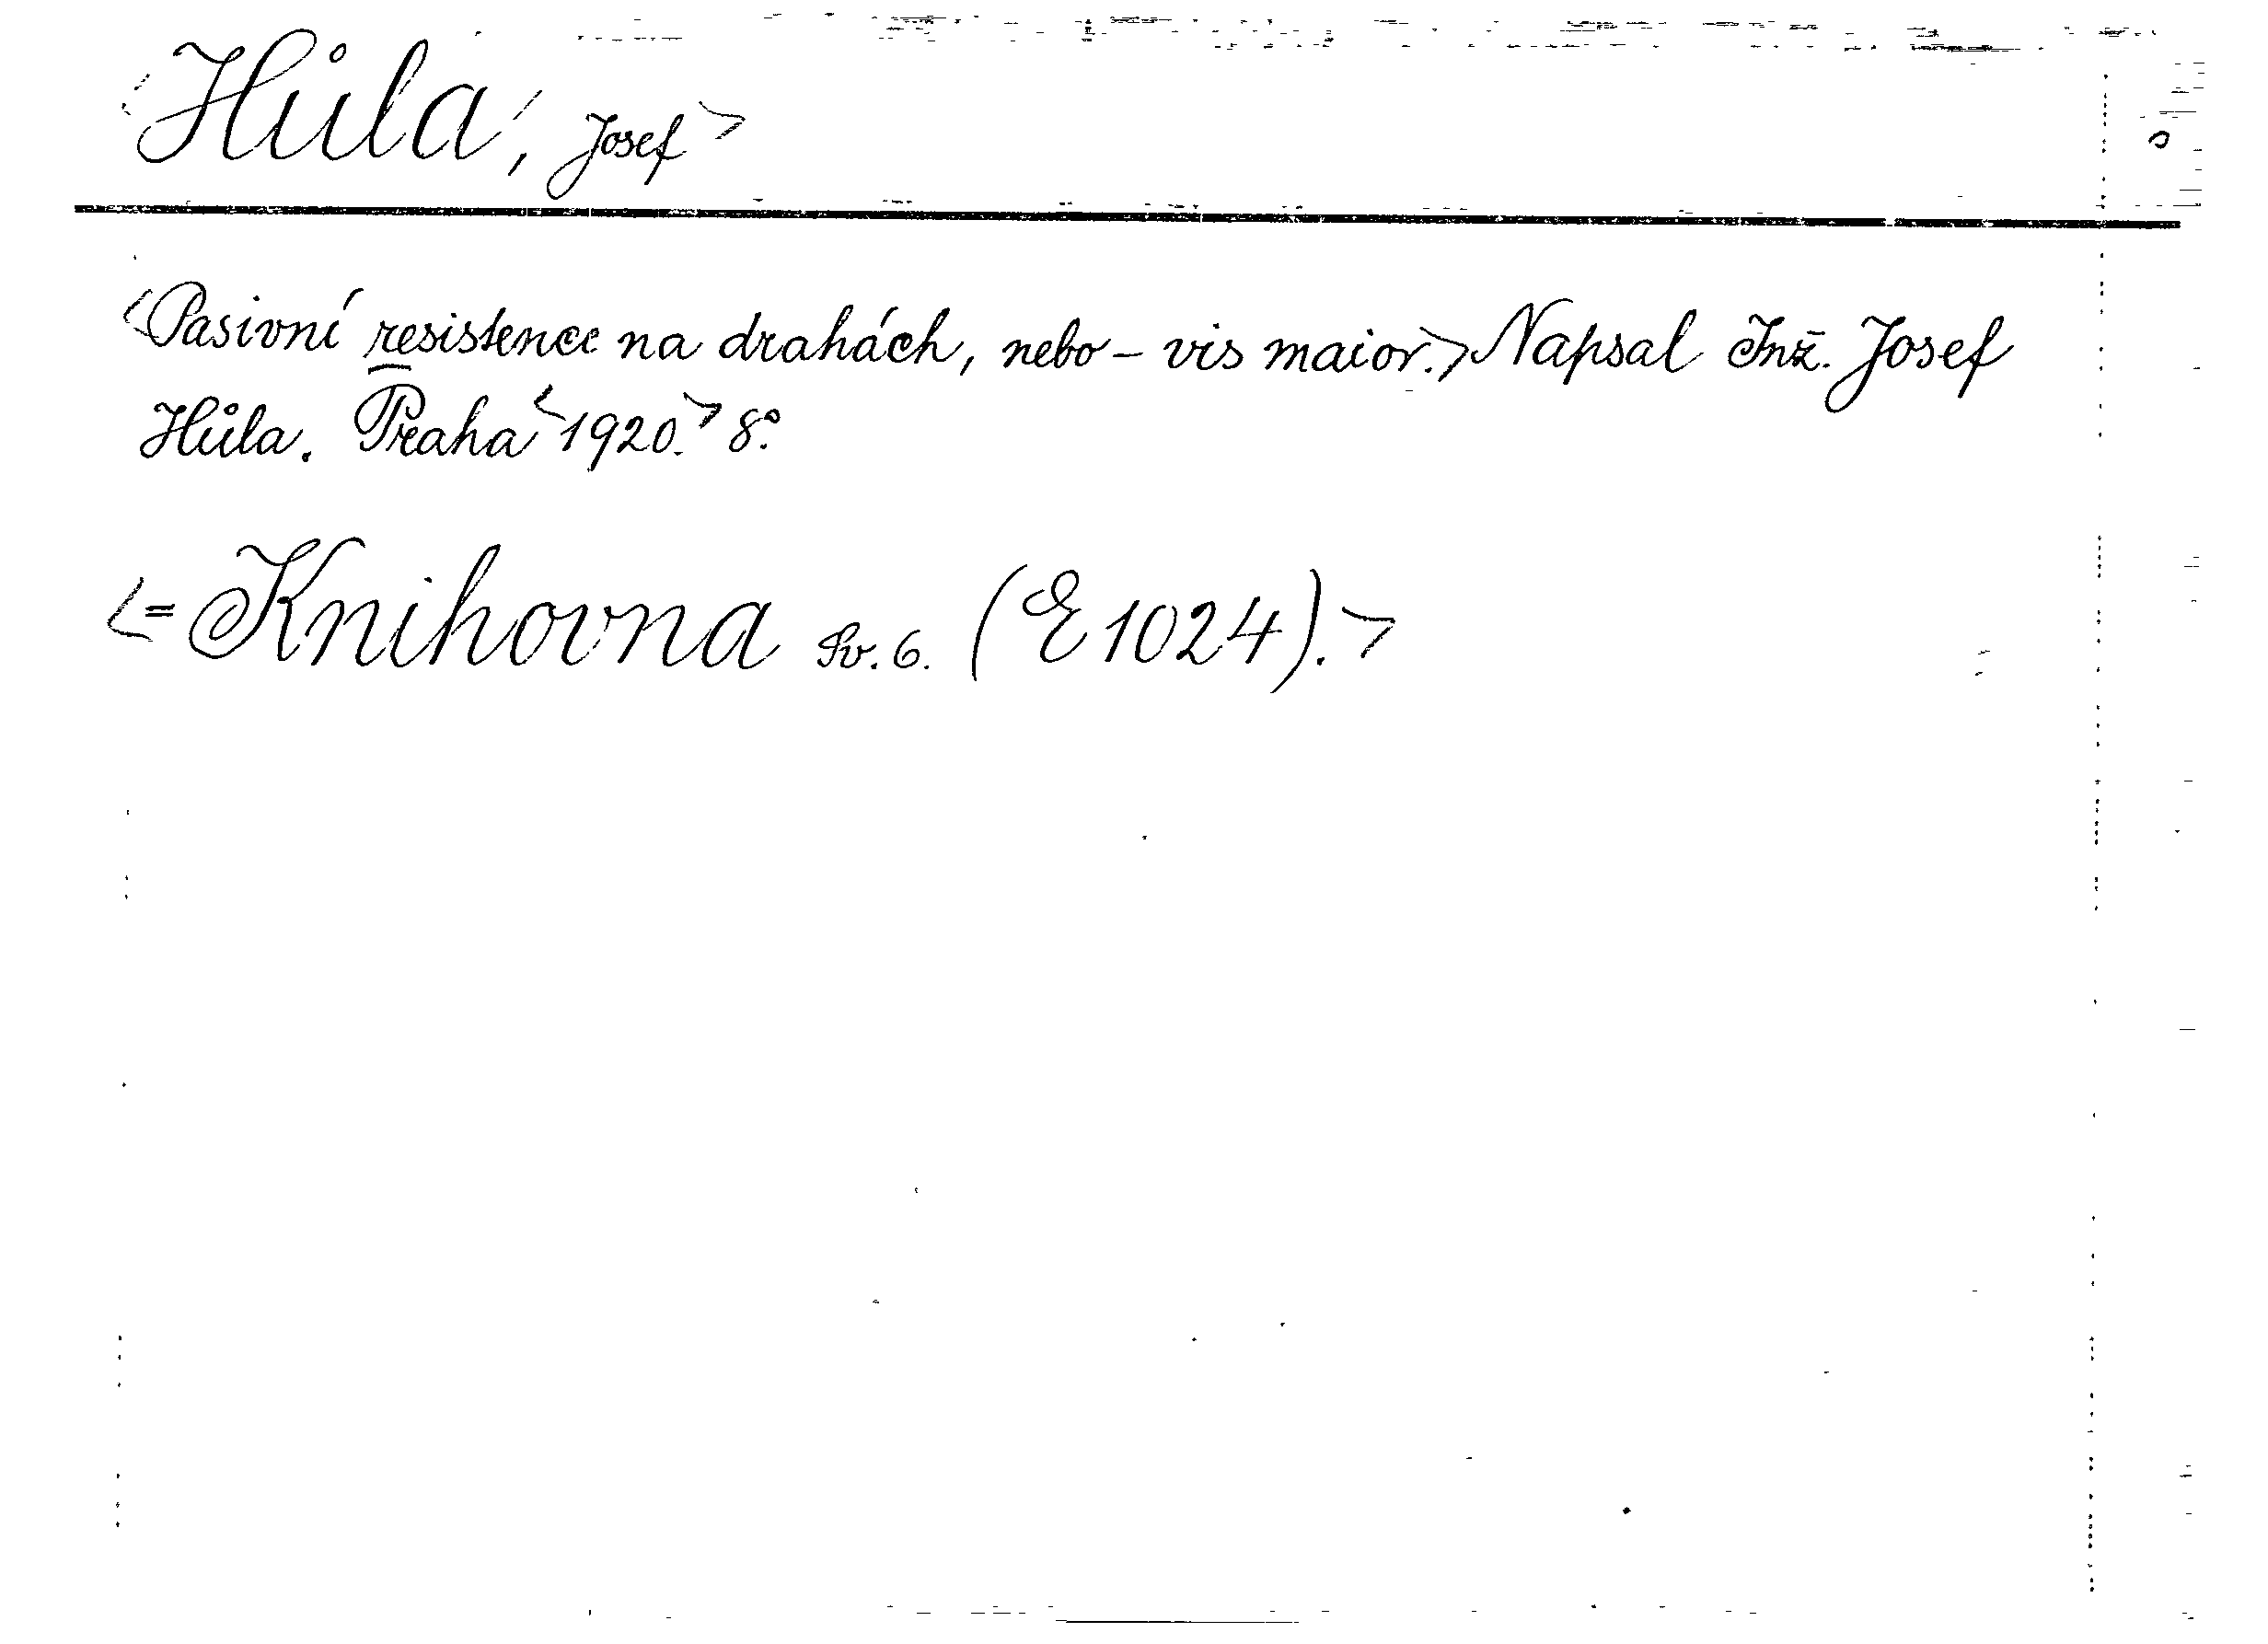 <Hůla, Josef>
<Pasivní resistence na drahách, nebo – vis maior.> Napsal Inž. Josef
Hůla. Praha <1920.> 8°.
<= Knihovna Sv. 6. (E 1024).>